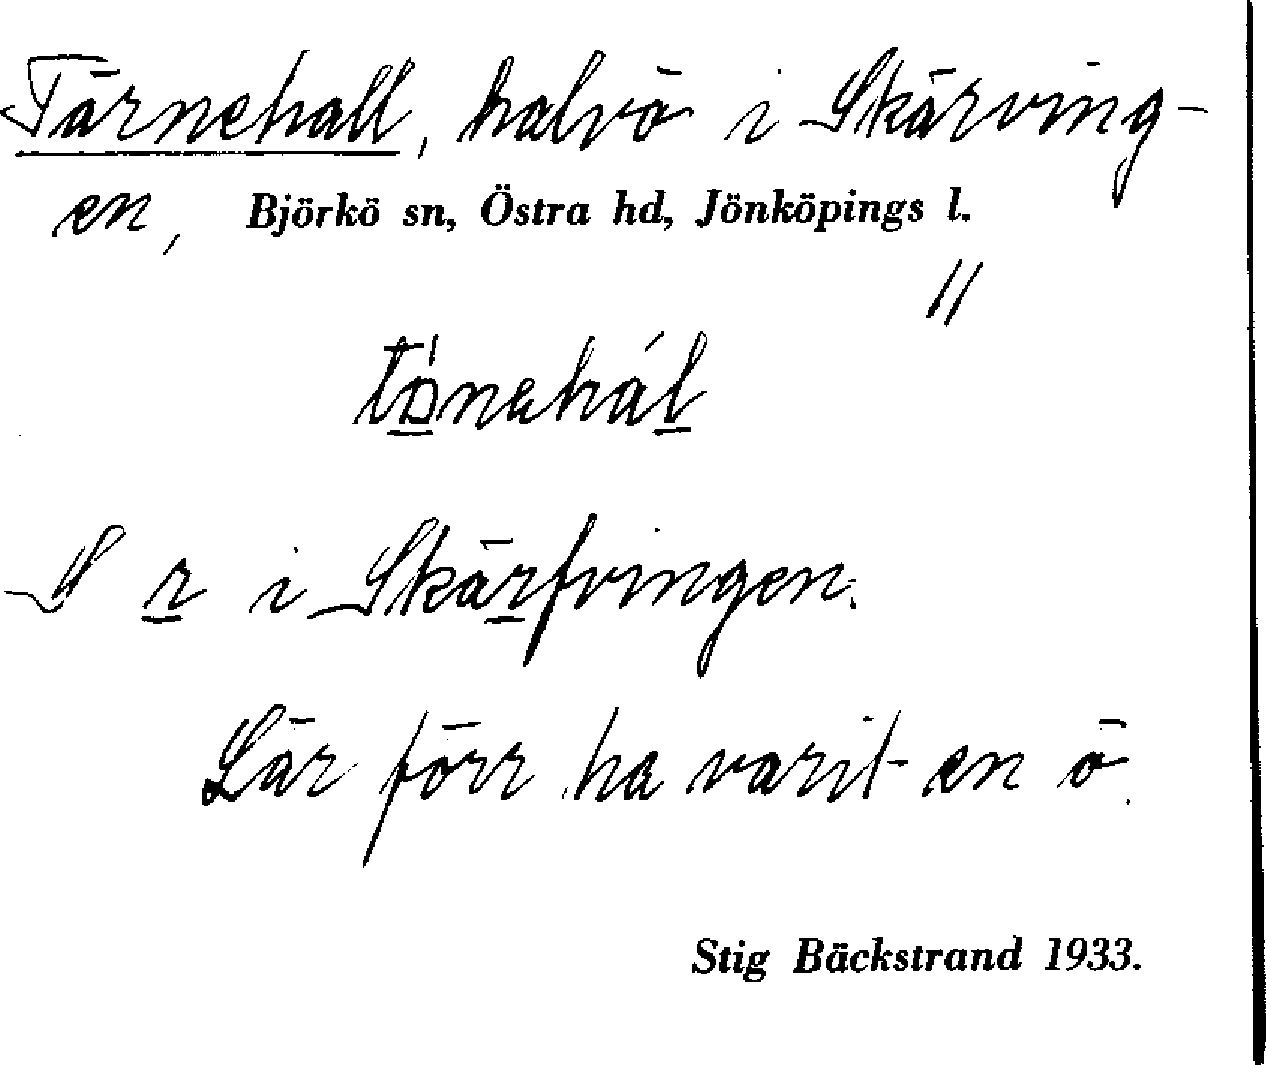 Tärnehall, halvö i Skärving-
en, Björkö sn, Östra hd, Jönköpings l.
S r i Skärfvingen.
Lär förr ha varit en ö.
Stig Bäckstrand 1933.